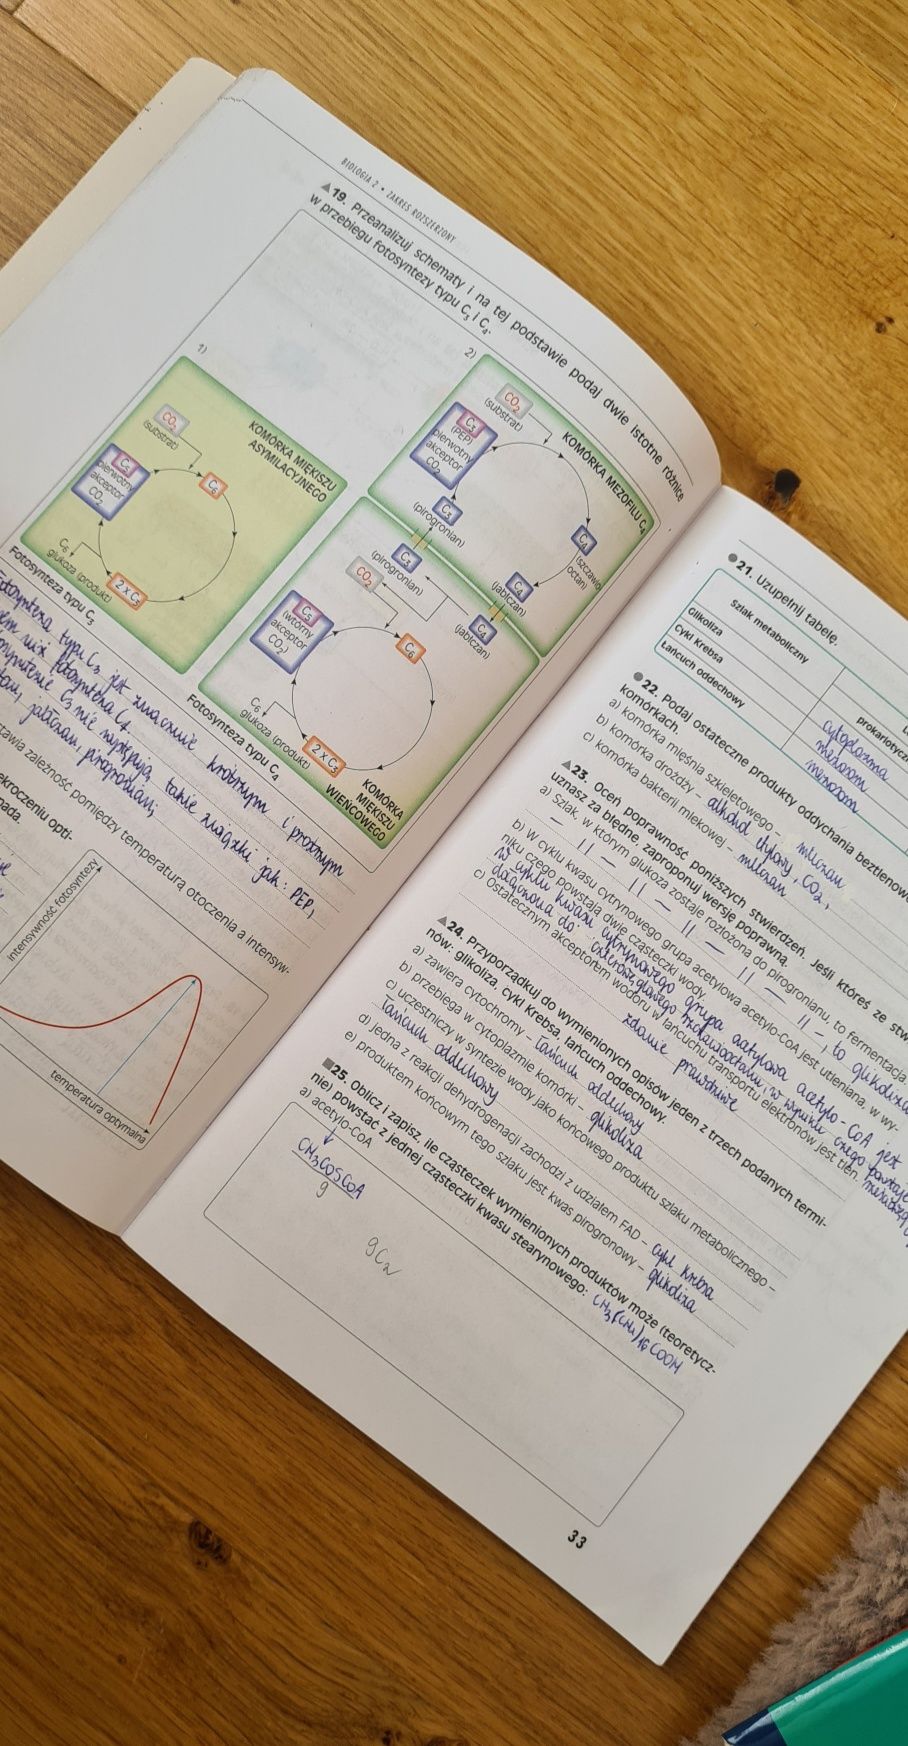 BIOLOGIA 2 • ZAKRES ROZSZERZONY
▲19. Przeanalizuj schematy i na tej podstawie podaj dwie istotne różnice
w przebiegu fotosyntezy typu C3 i C4.
1)
CO2
(substrat)
KOMÓRKA MIĘKISZU
ASYMILACYJNEGO
C5
pierwotny
akceptor
CO2
C6
C6
glukoza (produkt)
2 x C3
Fotosynteza typu C3
2)
CO2
(substrat)
KOMÓRKA MEZOFILU C4
C3
(PEP)
pierwotny
akceptor
CO2
C3
(pirogronian)
C4
(szczawio-
octan)
C4
(jabłczan)
C3
(pirogronian)
CO2
C4
(jabłczan)
C5
(wtórny
akceptor
CO2)
C6
C6
glukoza (produkt)
2 x C3
KOMÓRKA
MIĘKISZU
WIEŃCOWEGO
Fotosynteza typu C4
Fotosynteza typu C3 jest znacznie krótszym i prostszym
niż fotosynteza C4.
C3 nie występują takie związki jak: PEP,
jabłczan, pirogronian;
zależność pomiędzy temperaturą otoczenia a intensyw-
kroczeniu opti-
intensywność fotosyntezy
temperatura optymalna
●21. Uzupełnij tabelę.
Szlak metaboliczny
prokariotyczn
Glikoliza
cytoplazma
Cykl Krebsa
mezosom
Łańcuch oddechowy
mezosom
●22. Podaj ostateczne produkty oddychania beztlenowe
komórkach.
a) komórka mięśnia szkieletowego – mleczan
b) komórka drożdży – alkohol etylowy, CO2,
c) komórka bakterii mlekowej – mleczan
▲23. Oceń poprawność poniższych stwierdzeń. Jeśli któreś ze stw
uznasz za błędne, zaproponuj wersję poprawną.
a) Szlak, w którym glukoza zostaje rozłożona do pirogronianu, to fermentacja.
— 11 — 11 — 11 — 11 — 11 –, to glikoliza
b) W cyklu kwasu cytrynowego grupa acetylowa acetylo-CoA jest utleniana, w wy-
niku czego powstają dwie cząsteczki wody.
w cyklu kwasu cytrynowego grupa acetylowa acetylo-CoA jest
c) Ostatecznym akceptorem wodoru w łańcuchu transportu elektronów jest tlen.
zdanie prawdziwe
▲24. Przyporządkuj do wymienionych opisów jeden z trzech podanych termi-
nów: glikoliza, cykl Krebsa, łańcuch oddechowy.
a) zawiera cytochromy – łańcuch oddechowy
b) przebiega w cytoplazmie komórki – glikoliza
c) uczestniczy w syntezie wody jako końcowego produktu szlaku metabolicznego –
łańcuch oddechowy
d) jedna z reakcji dehydrogenacji zachodzi z udziałem FAD – cykl Krebsa
e) produktem końcowym tego szlaku jest kwas pirogronowy – glikoliza
■25. Oblicz i zapisz, ile cząsteczek wymienionych produktów może (teoretycz-
nie) powstać z jednej cząsteczki kwasu stearynowego: CH3(CH2)16COOH
a) acetylo-CoA
CH3COSCoA
9
9C2
33